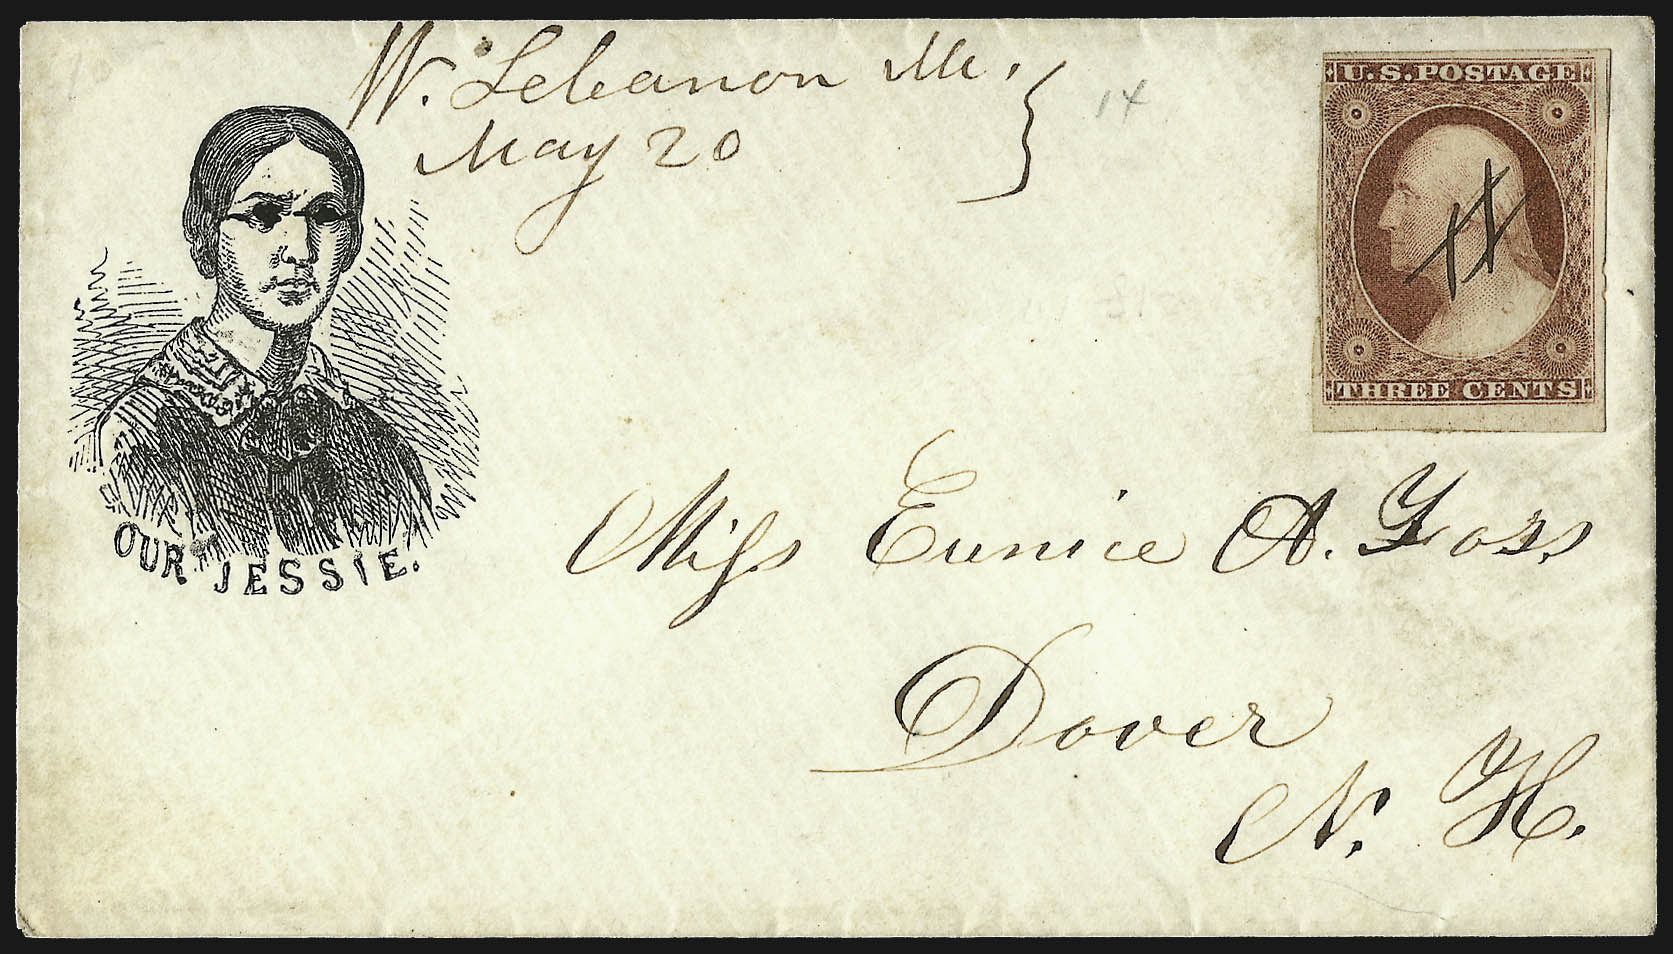 W. Lebanon Me.
May 20
14
U.S. POSTAGE
THREE CENTS
OUR JESSIE.
Miss Eunice A.
Dover
N. H.